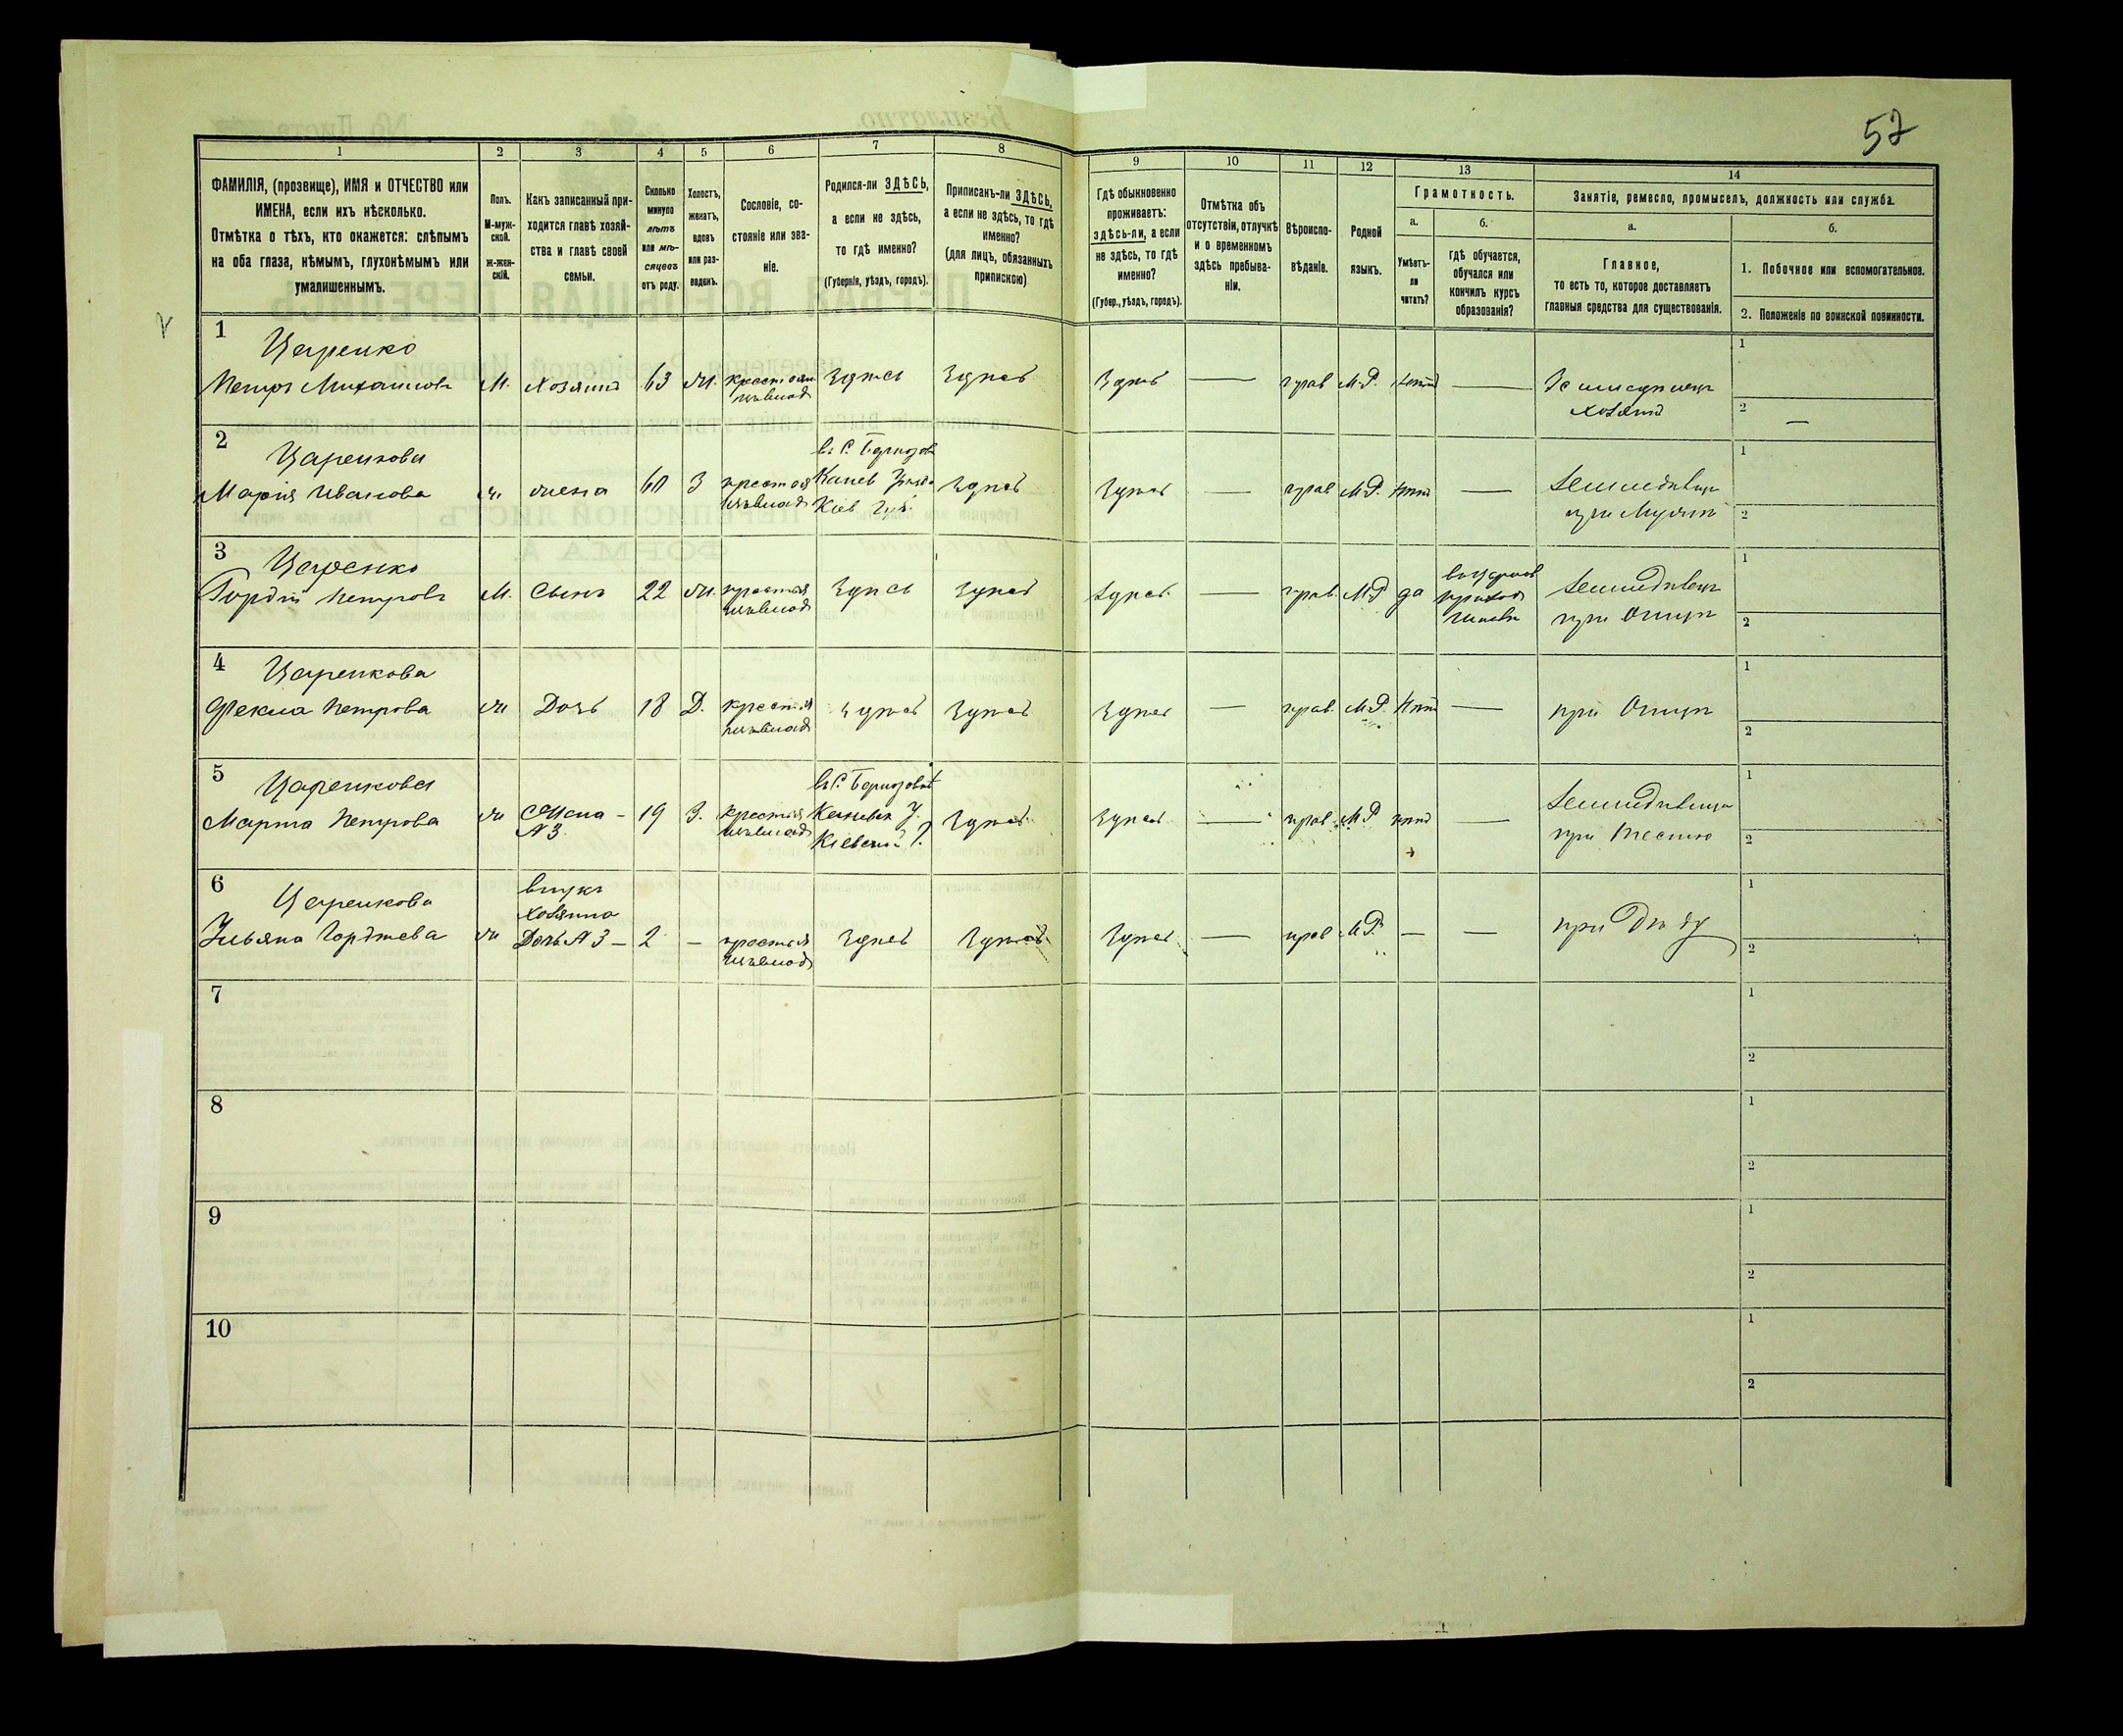 57
1 2 3 4 5 6 7 8 9 10 11 12 13 14
ФАМИЛІЯ, (прозвище), ИМЯ и ОТЧЕСТВО или
ИМЕНА, если ихъ нѣсколько.
Отмѣтка о тѣхъ, кто окажется: слѣпымъ
на оба глаза, нѣмымъ, глухонѣмымъ или
умалишеннымъ.
Полъ.
М-муж-
ской.
ж-жен-
скій.
Какъ записанный при-
ходится главѣ хозяй-
ства и главѣ своей
семьи.
Сколько
минуло
лѣтъ
или мѣ-
сяцевъ
отъ роду.
Холостъ,
женатъ,
вдовъ
или раз-
веденъ.
Сословіе, со-
стояніе или зва-
ніе.
Родился-ли ЗДѢСЬ,
а если не здѣсь,
то гдѣ именно?
(Губернія, уѣздъ, городъ).
Приписанъ-ли ЗДѢСЬ,
а если не здѣсь, то гдѣ
именно?
(для лицъ, обязанныхъ
припискою)
Гдѣ обыкновенно
проживаетъ:
здѣсь-ли, а если
не здѣсь, то гдѣ
именно?
(Губер., уѣздъ, городъ).
Отмѣтка объ
отсутствіи, отлучкѣ
и о временномъ
здѣсь пребыва-
ніи.
Вѣроиспо-
вѣданіе.
Родной
языкъ.
Грамотность.
а.
Умѣетъ-
ли
читать?
б.
гдѣ обучается,
обучался или
кончилъ курсъ
образованія?
Занятіе, ремесло, промыселъ, должность или служба.
а.
Главное,
то есть то, которое доставляетъ
главныя средства для существованія.
б.
1. Побочное или вспомогательное.
2. Положеніе по воинской повинности.
1
Царенко
Петръ Михаиловъ М. Хозяинъ 63 ж. крестьян. здѣсь здѣсь здѣсь — прав М.Р. нѣтъ —
хозяинъ
1
2 —
2
Царенкова
Марія Иванова ж. жена 60 З крестья
въ С. Бернозов
Канев Уѣзда
Кіев Губ.
здѣсь здѣсь — прав М.Р. нѣтъ —
земледѣлец
при мужѣ
1
2
3
Царенко
Гордій Петровъ М. Сынъ 22 ж. крестья здѣсь здѣсь здѣсь — прав. М.Р да
приход
земледѣлец
при отцѣ
1
2
4
Царенкова
Фекла Петрова ж Дочь 18 Д. крестья здѣсь здѣсь здѣсь — прав. М.Р. нѣтъ — при отцѣ
1
2
5
Царенкова
Марта Петрова ж жена №3 — 19 З. крестья
въ С. Бернозовкѣ
Каневск У.
Кіевской Г.
здѣсь здѣсь — прав. М.Р нѣтъ —
земледѣлица
при тестю
1
2
6
Царенкова
Ульяна Гордѣева ж
внука
хозяина
Дочь №3 — 2 — крестья здѣсь здѣсь здѣсь — прав М.Р. — — при дѣду
1
2
7
1
2
8
1
2
9
1
2
10
1
2